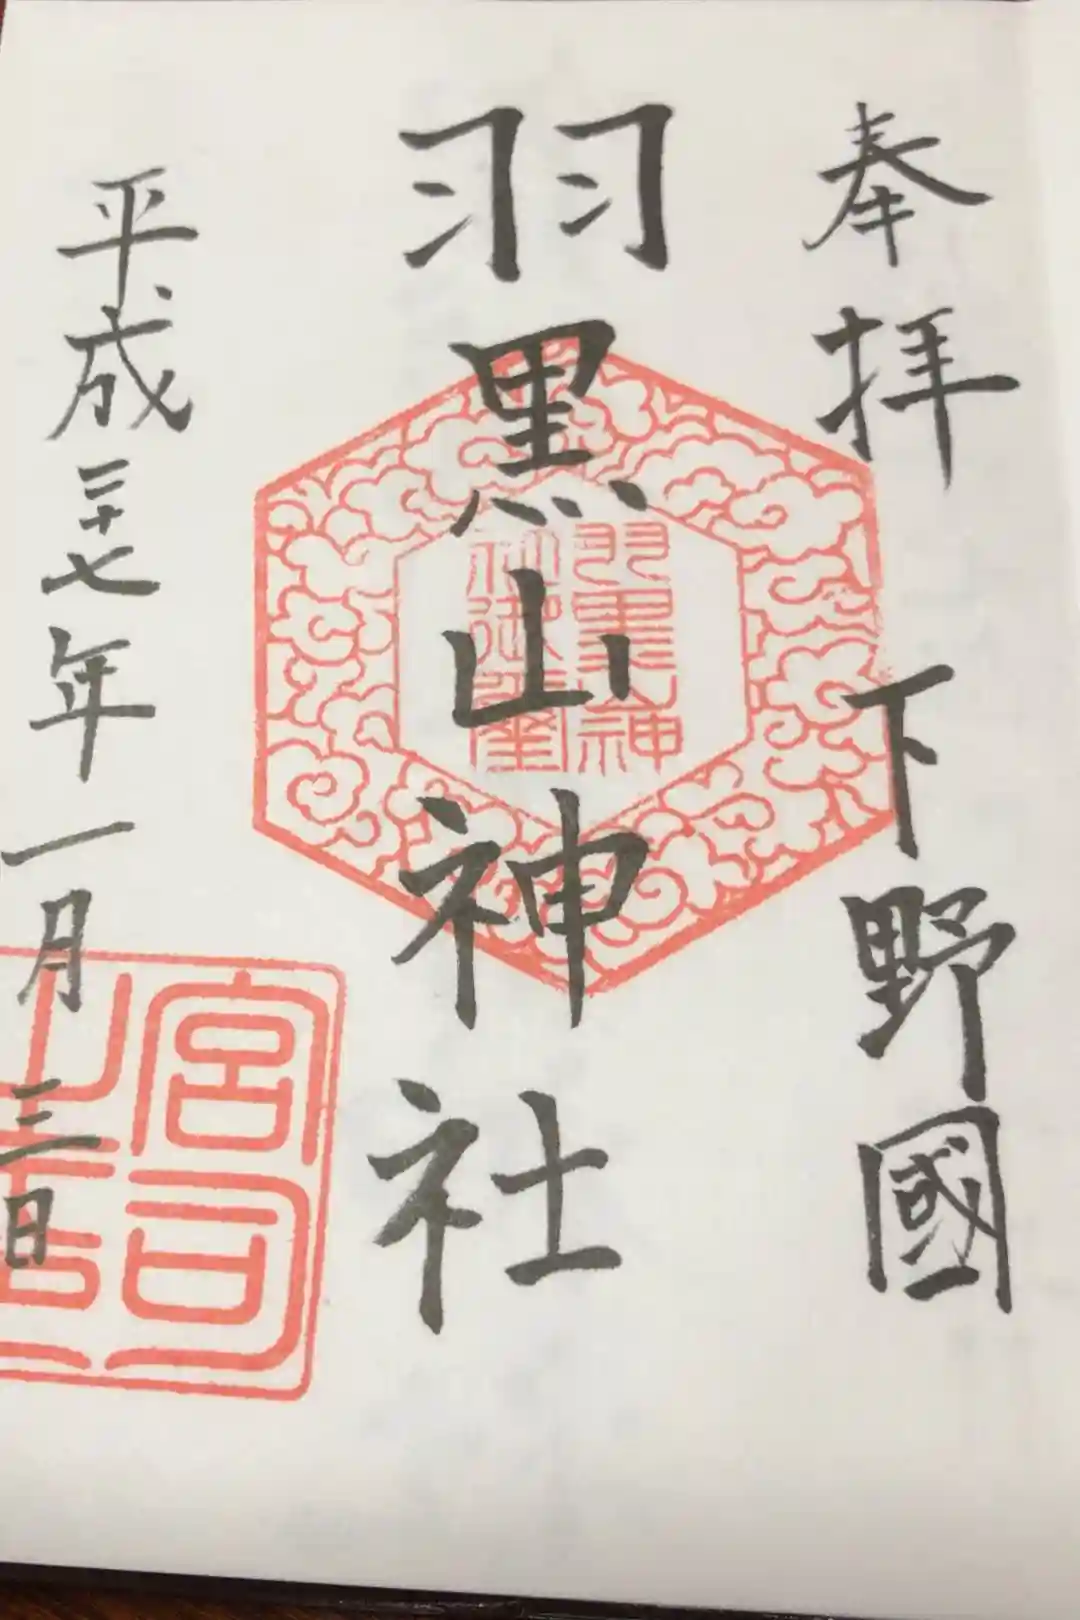 奉拝 下野國
羽黒山神社
平成二十七年一月三日
羽黒神
社御璽
宮司